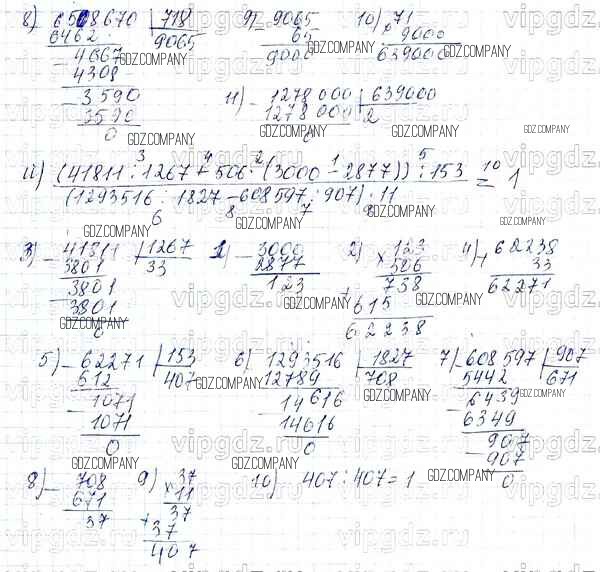 8) 6508670 | 718
6462 9065
4667
4308
3590
3590
0
9) - 9065
65
9000
10) x 71
9000
639000
11) - 1278000 | 639000
1278000 2
0
u) (41811 : 1267 + 506 · (3000 - 2877)) : 153
(1293516 : 1827 - 608597 : 907) · 11
= 1
3) - 41811 | 1267
3801 33
3801
3801
0
1) - 3000
2877
123
2) x 123
506
738
+ 615
62238
4) + 62238
33
62271
5) - 62271 | 153
612 407
1071
1071
0
6) 1293516 | 1827
12789 708
14616
14616
0
7) - 608597 | 907
5442 671
6439
6349
907
907
0
8) - 708
671
37
9) x 37
11
37
+ 37
407
10) 407 : 407 = 1
GDZ.COMPANY
vipgdz.ru